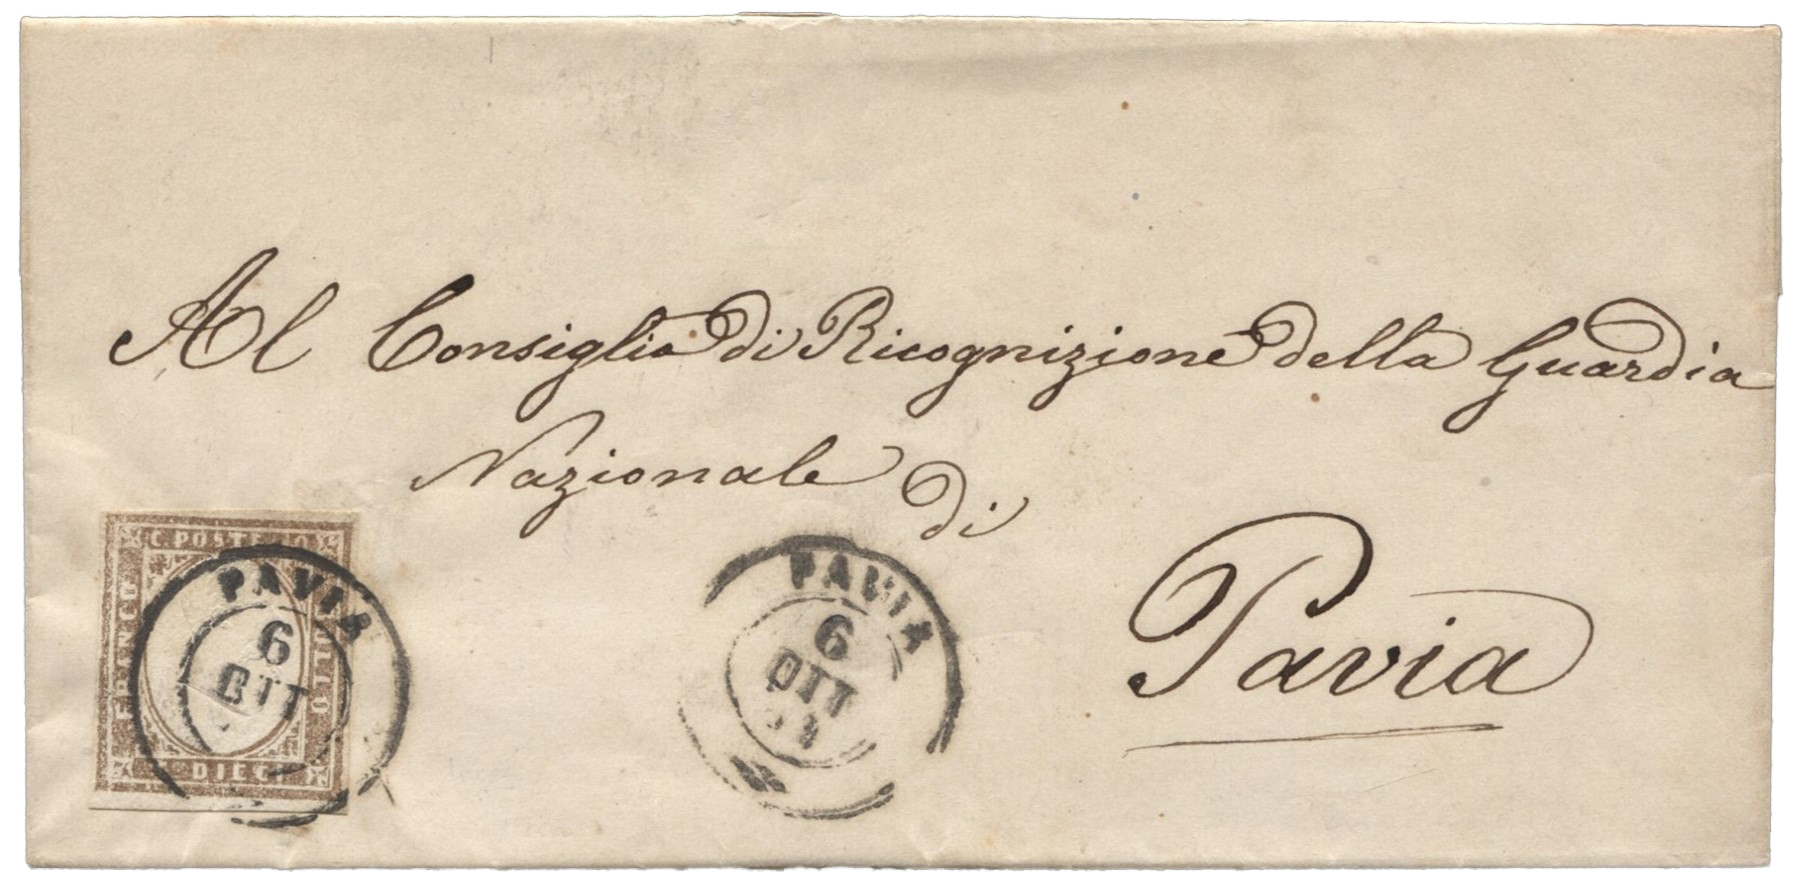 Al Consiglio di Ricognizione della Guardia
Nazionale di
Pavia
C. POSTE
FRANCO
DIECI
PAVIA
6
OTT
PAVIA
6
OTT